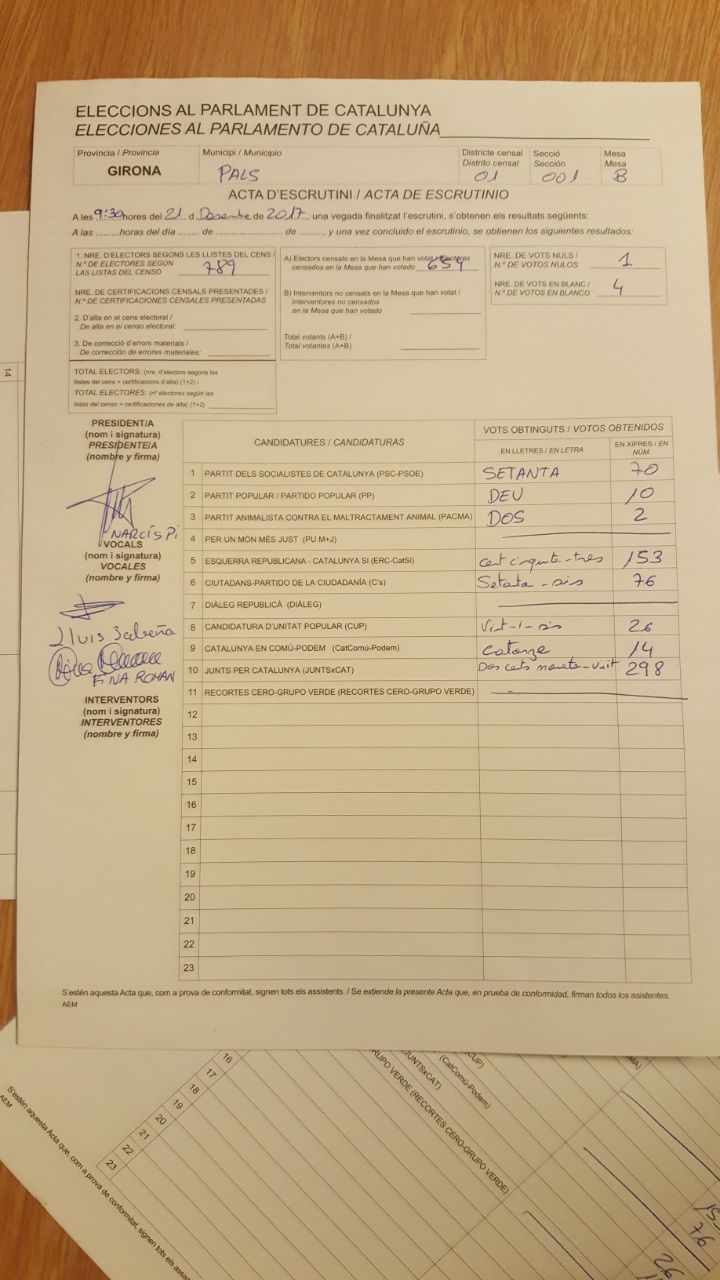 ELECCIONS AL PARLAMENT DE CATALUNYA
ELECCIONES AL PARLAMENTO DE CATALUÑA
Provincia / Provincia
GIRONA
Municipi / Municipio
PALS
Districte censal
Distrito censal
01
Secció
Sección
001
Mesa
Mesa
B
ACTA D'ESCRUTINI / ACTA DE ESCRUTINIO
A les 9:30 hores del 21 d Desembre de 2017, una vegada finalitzat l'escrutini, s'obtenen els resultats següents:
A las .........horas del día ....... de ............................ de .........., y una vez concluido el escrutinio, se obtienen los siguientes resultados:
1. NRE. D'ELECTORS SEGONS LES LLISTES DEL CENS /
N.º DE ELECTORES SEGÚN
LAS LISTAS DEL CENSO
789
NRE. DE CERTIFICACIONS CENSALS PRESENTADES /
N.º DE CERTIFICACIONES CENSALES PRESENTADAS
2. D'alta en el cens electoral /
De alta en el censo electoral:
3. De correcció d'errors materials /
De corrección de errores materiales:
TOTAL ELECTORS: (nre. d'electors segons les
llistes del cens + certificacions d'alta) (1+2) /
TOTAL ELECTORES: (nº electores según las
listas del censo + certificaciones de alta) (1+2)
A) Electors censats en la Mesa que han votat / Electores
censados en la Mesa que han votado
654
B) Interventors no censats en la Mesa que han votat /
Interventores no censados
en la Mesa que han votado
Total votants (A+B) /
Total votantes (A+B)
NRE. DE VOTS NULS /
N.º DE VOTOS NULOS
1
NRE. DE VOTS EN BLANC /
N.º DE VOTOS EN BLANCO
4
PRESIDENT/A
(nom i signatura)
PRESIDENTE/A
(nombre y firma)
NARCÍS Pi
VOCALS
(nom i signatura)
VOCALES
(nombre y firma)
Lluis
FINA ROMAN
INTERVENTORS
(nom i signatura)
INTERVENTORES
(nombre y firma)
CANDIDATURES / CANDIDATURAS
VOTS OBTINGUTS / VOTOS OBTENIDOS
EN LLETRES / EN LETRA
EN XIFRES / EN NÚM.
1 PARTIT DELS SOCIALISTES DE CATALUNYA (PSC-PSOE) SETANTA 70
2 PARTIT POPULAR / PARTIDO POPULAR (PP) DEU 10
3 PARTIT ANIMALISTA CONTRA EL MALTRACTAMENT ANIMAL (PACMA) DOS 2
4 PER UN MÓN MÉS JUST (PU M+J)
5 ESQUERRA REPUBLICANA - CATALUNYA SI (ERC-CatSí) cent cinquanta-tres 153
6 CIUTADANS-PARTIDO DE LA CIUDADANÍA (C's) Setanta-sis 76
7 DIÀLEG REPUBLICÀ (DIÀLEG)
8 CANDIDATURA D'UNITAT POPULAR (CUP) Vint-i-sis 26
9 CATALUNYA EN COMÚ-PODEM (CatComú-Podem) Catorze 14
10 JUNTS PER CATALUNYA (JUNTSxCAT) Dos cents noranta-vuit 298
11 RECORTES CERO-GRUPO VERDE (RECORTES CERO-GRUPO VERDE)
12
13
14
15
16
17
18
19
20
21
22
23
S'estén aquesta Acta que, com a prova de conformitat, signen tots els assistents. / Se extiende la presente Acta que, en prueba de conformidad, firman todos los asistentes.
AEM
14
16
17
18
19
20
21
22
23
(CUP)
(CatComú-Podem)
JUNTSxCAT)
GRUPO VERDE (RECORTES CERO-GRUPO VERDE)
S'estén aquesta Acta que, com a prova de conformitat, signen tots els assis
AEM
76
26